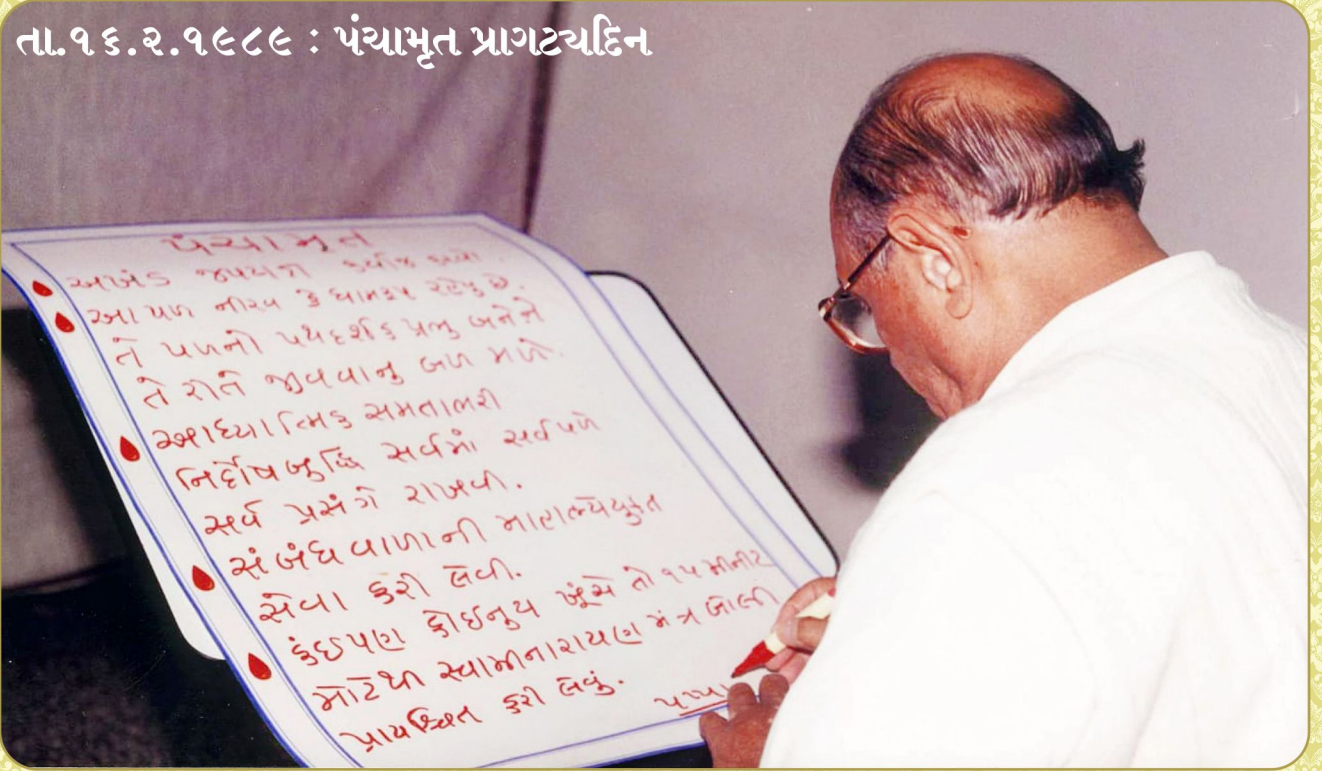 તા.૧૬.૨.૧૯૮૯ : પંચામૃત પ્રાગટ્યદિન
પંચામૃત
અખંડ જપયજ્ઞ કર્યાજ કરવો
આ પળ નીરવ કે ધામરૂપ રહેવું છે.
તે પળનો પથદર્શક પ્રભુ બનેને
તે રીતે જીવવાનુ બળ મળો.
આધ્યાત્મિક સમતાભરી
નિર્દોષબુદ્ધિ સર્વમાં સર્વપળે
સર્વ પ્રસંગે રાખવી.
સંબંધવાળાની માહાત્મ્યેયુક્ત
સેવા કરી લેવી.
કંઇપણ કોઇનુય ખૂંચે તો ૧૫ મીનીટ
મોટેથી સ્વામીનારાયણ મંત્ર બોલી
પ્રાયશ્ચિત કરી લેવું.
પપ્પા